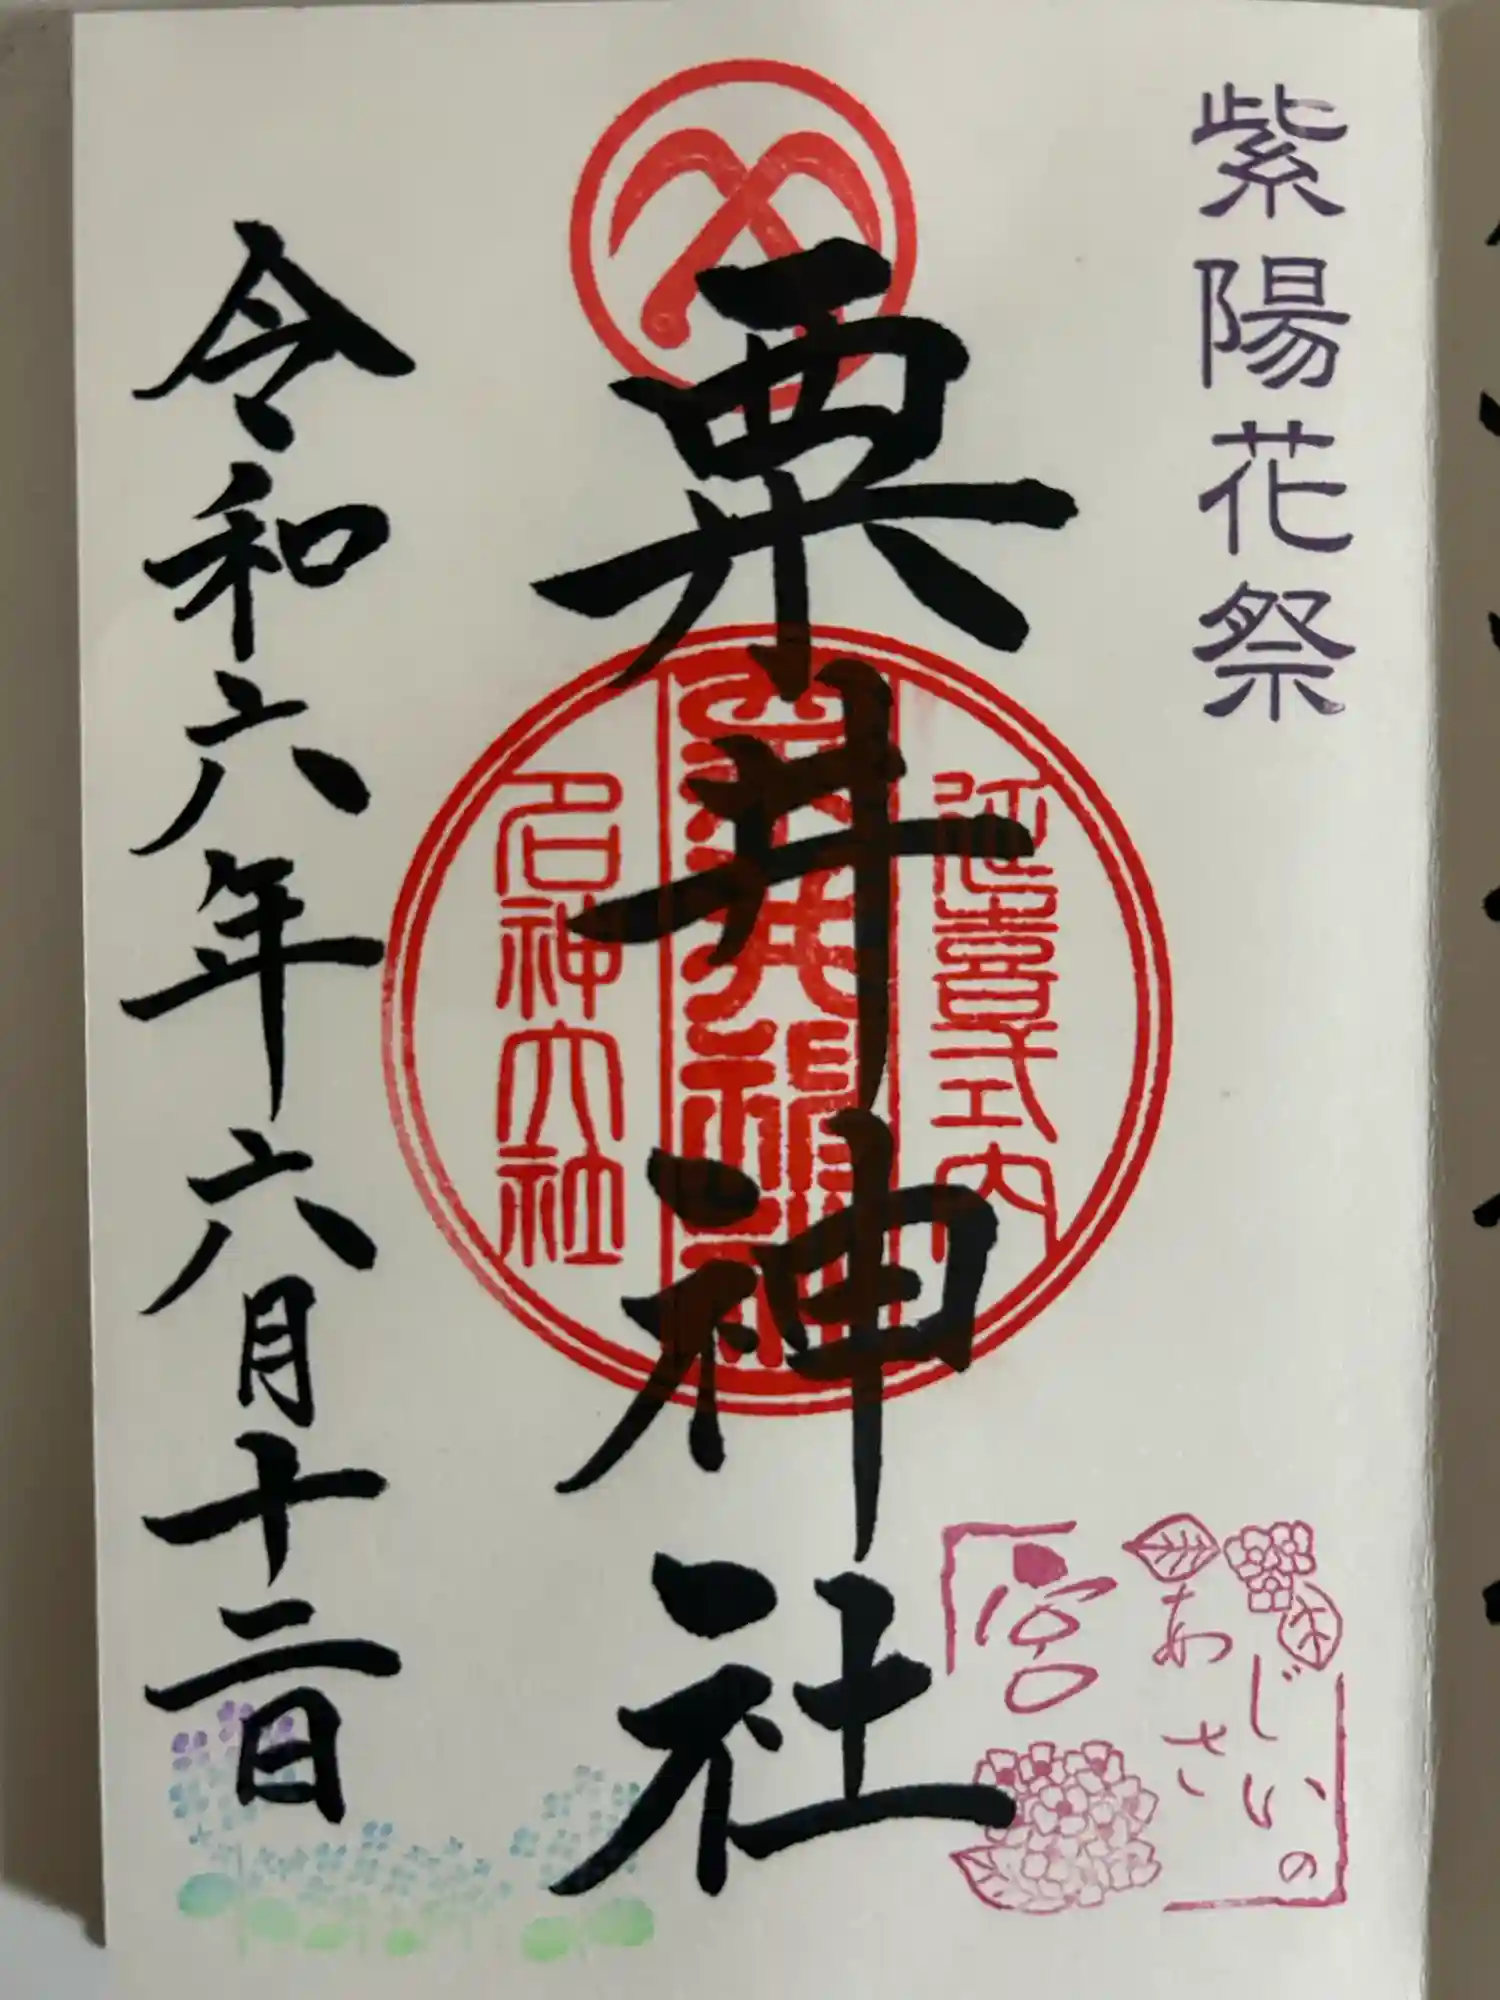 紫陽花祭
粟井神社
延喜式内
粟井神社
名神大社
令和六年六月十二日
あじさいの
宮